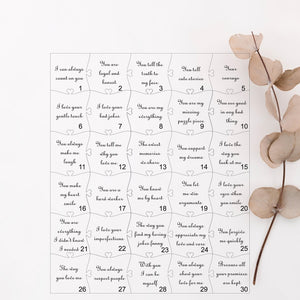 I can always
count on you
1
You are
loyal and
honest
2
You tell the
truth to
my face
3
You tell
cute stories
4
Your
courage
5
I love your
gentle touch
6
I love your
bad jokes
7
You are my
everything
8
You are my
missing
puzzle piece
9
You see good
in any bad
thing
10
You always
make me
laugh
11
You tell me
why you
love me
12
The sweet
memories
we share
13
You support
my dreams
14
I love the
way you
look at me
15
You make
my heart
smile
16
You are a
hard worker
17
You know
me by heart
18
You let
me win
arguments
19
I love your
eyes when
you smile
20
You are
everything
I didn't know
I needed
21
I love your
imperfections
22
The way you
find my boring
jokes funny
23
You always
appreciate my
love and care
24
You forgive
me quickly
25
The way
you love me
26
You always
respect people
27
With you
I can be
myself
28
You always
show your
love for me
29
Because all
your promises
are kept
30